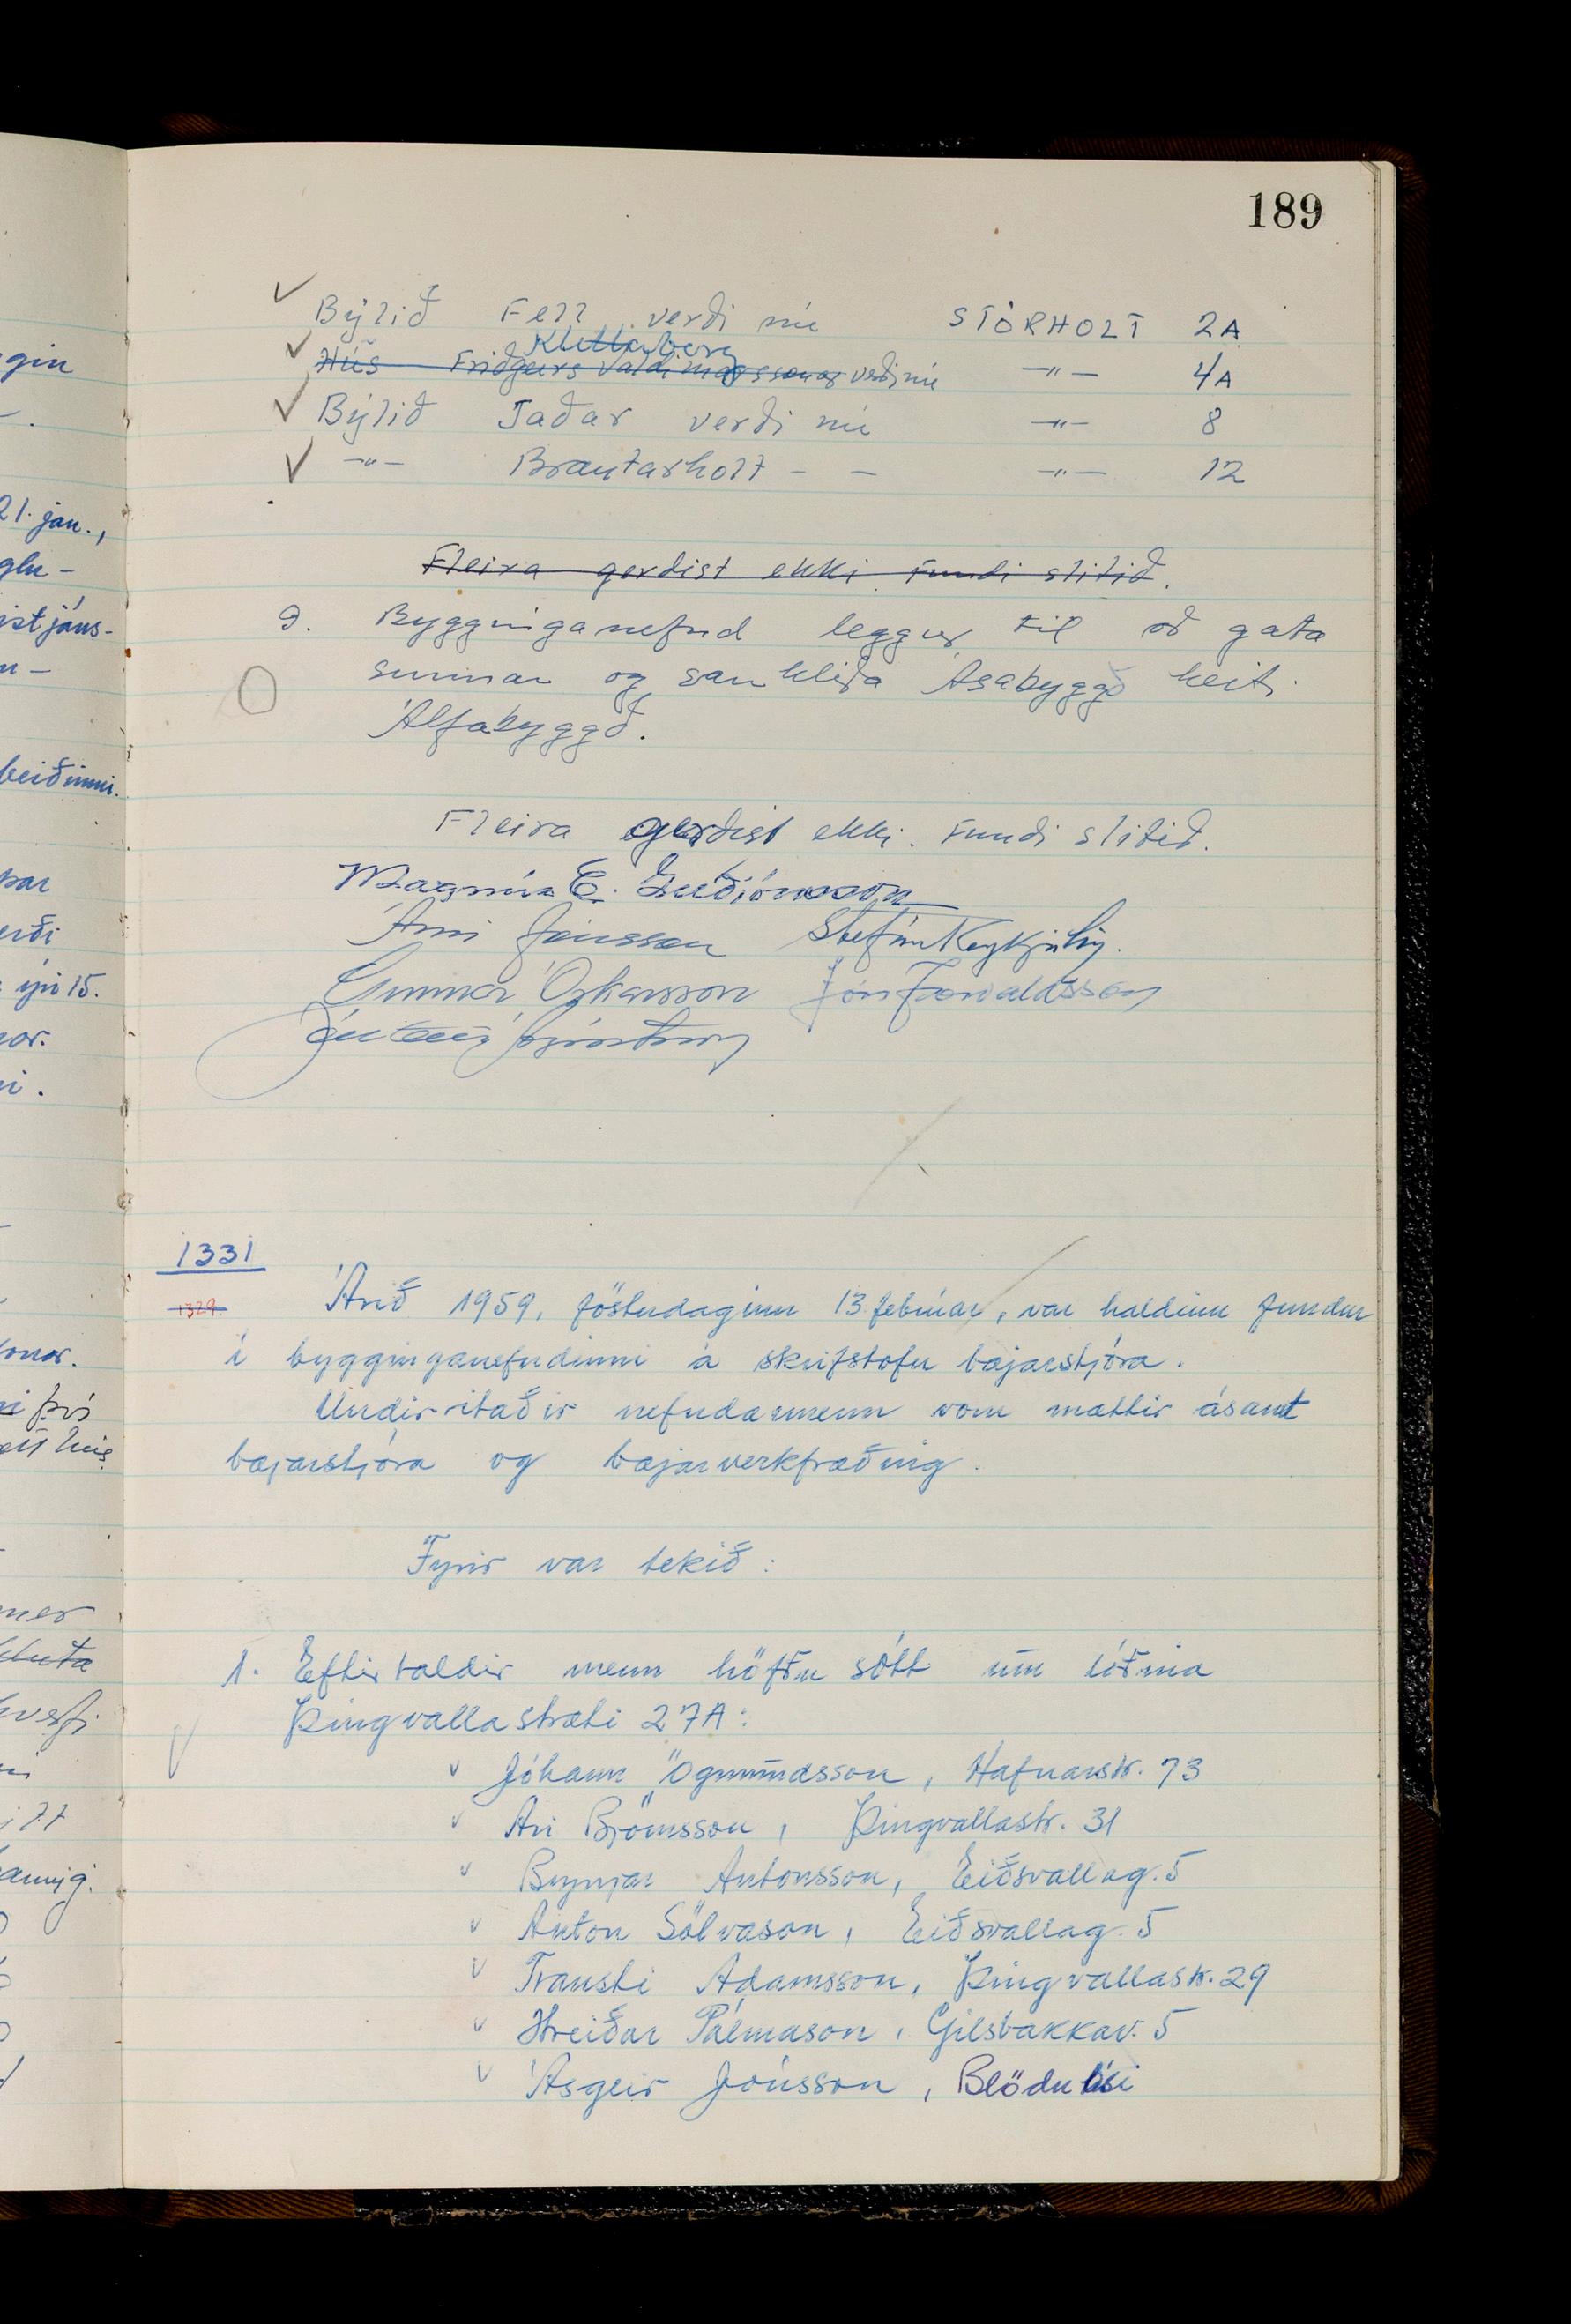 189
Býlið Fell verði nú STÓRHOLT 2A
Klettaborg
Hús Friðgeirs Valdimarssonar verði nú —"— 4A
Býlið Jaðar verði nú —"— 8
—"— Brautarholt - — —"— 12
Fleira gerdist ekki fundi slitið.
9. Bygginganefnd leggur til að gata
sunnan og samhliða Ásabyggð heiti
Álfabyggð.
Fleira gerdist ekki. Fundi slitið.
Magnús E. Guðjónsson
Árni Jónsson Stefán Reykjalín.
Gunnar Óskarsson Jón Þorvaldsson
1331
1329.
Árið 1959, föstudaginn 13. febrúar, var haldinn fundur
í bygginganefndinni á skrifstofu bæjarstjóra.
Undirritaðir nefndarmenn voru mættir ásamt
bæjarstjóra og bæjarverkfræðing.
Fyrir var tekið:
1. Eftirtaldir menn höfðu sótt um lóðina
Þingvallastræti 27A:
Jóhann Ögmundsson, Hafnarstr. 73
Ari Björnsson, Þingvallastr. 31
Brynjar Antonsson, Eiðsvallag. 5
Anton Sölvason, Eiðsvallag. 5
Trausti Adamsson, Þingvallastr. 29
Hreiðar Pálmason, Gilsbakkav. 5
Ásgeir Jónsson, Blöduósi
gin
21. jan.,
glu-
istjáns-
beiðinni.
þar
erði
15.
onar.